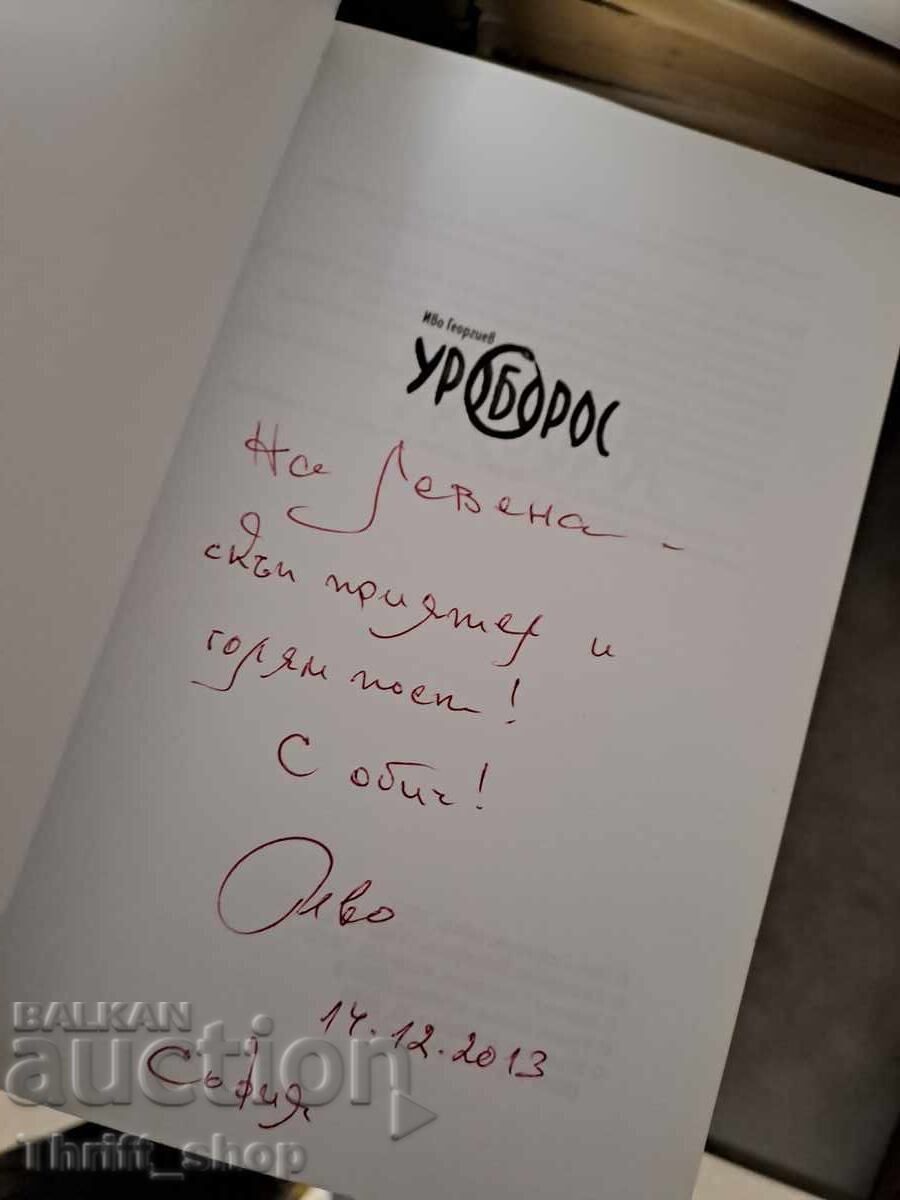 Иво Георгиев
УРОБОРОС
На Левена -
скъп приятел и
голям поет!
С обич!
Иво
14.12.2013
София
BALKAN
auction
Thrift_shop